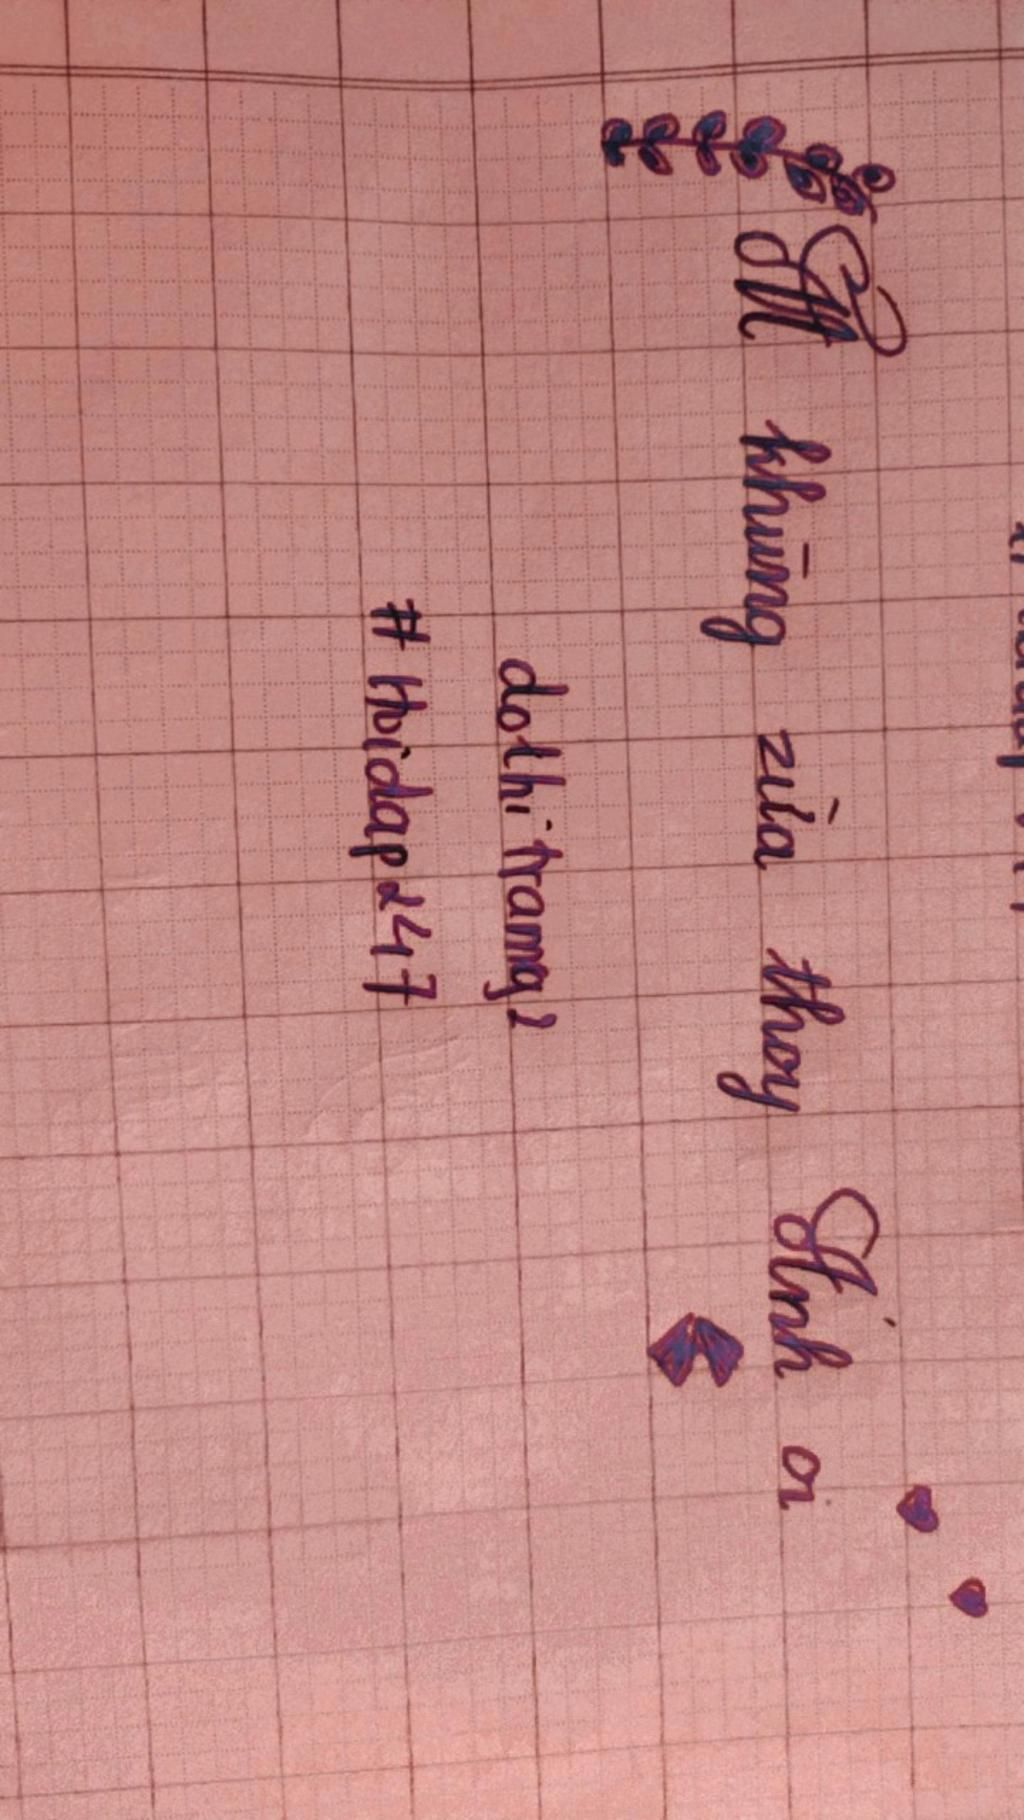 khùng zìa thoy Ánh ơi
dothitrang2
#Hoidap247